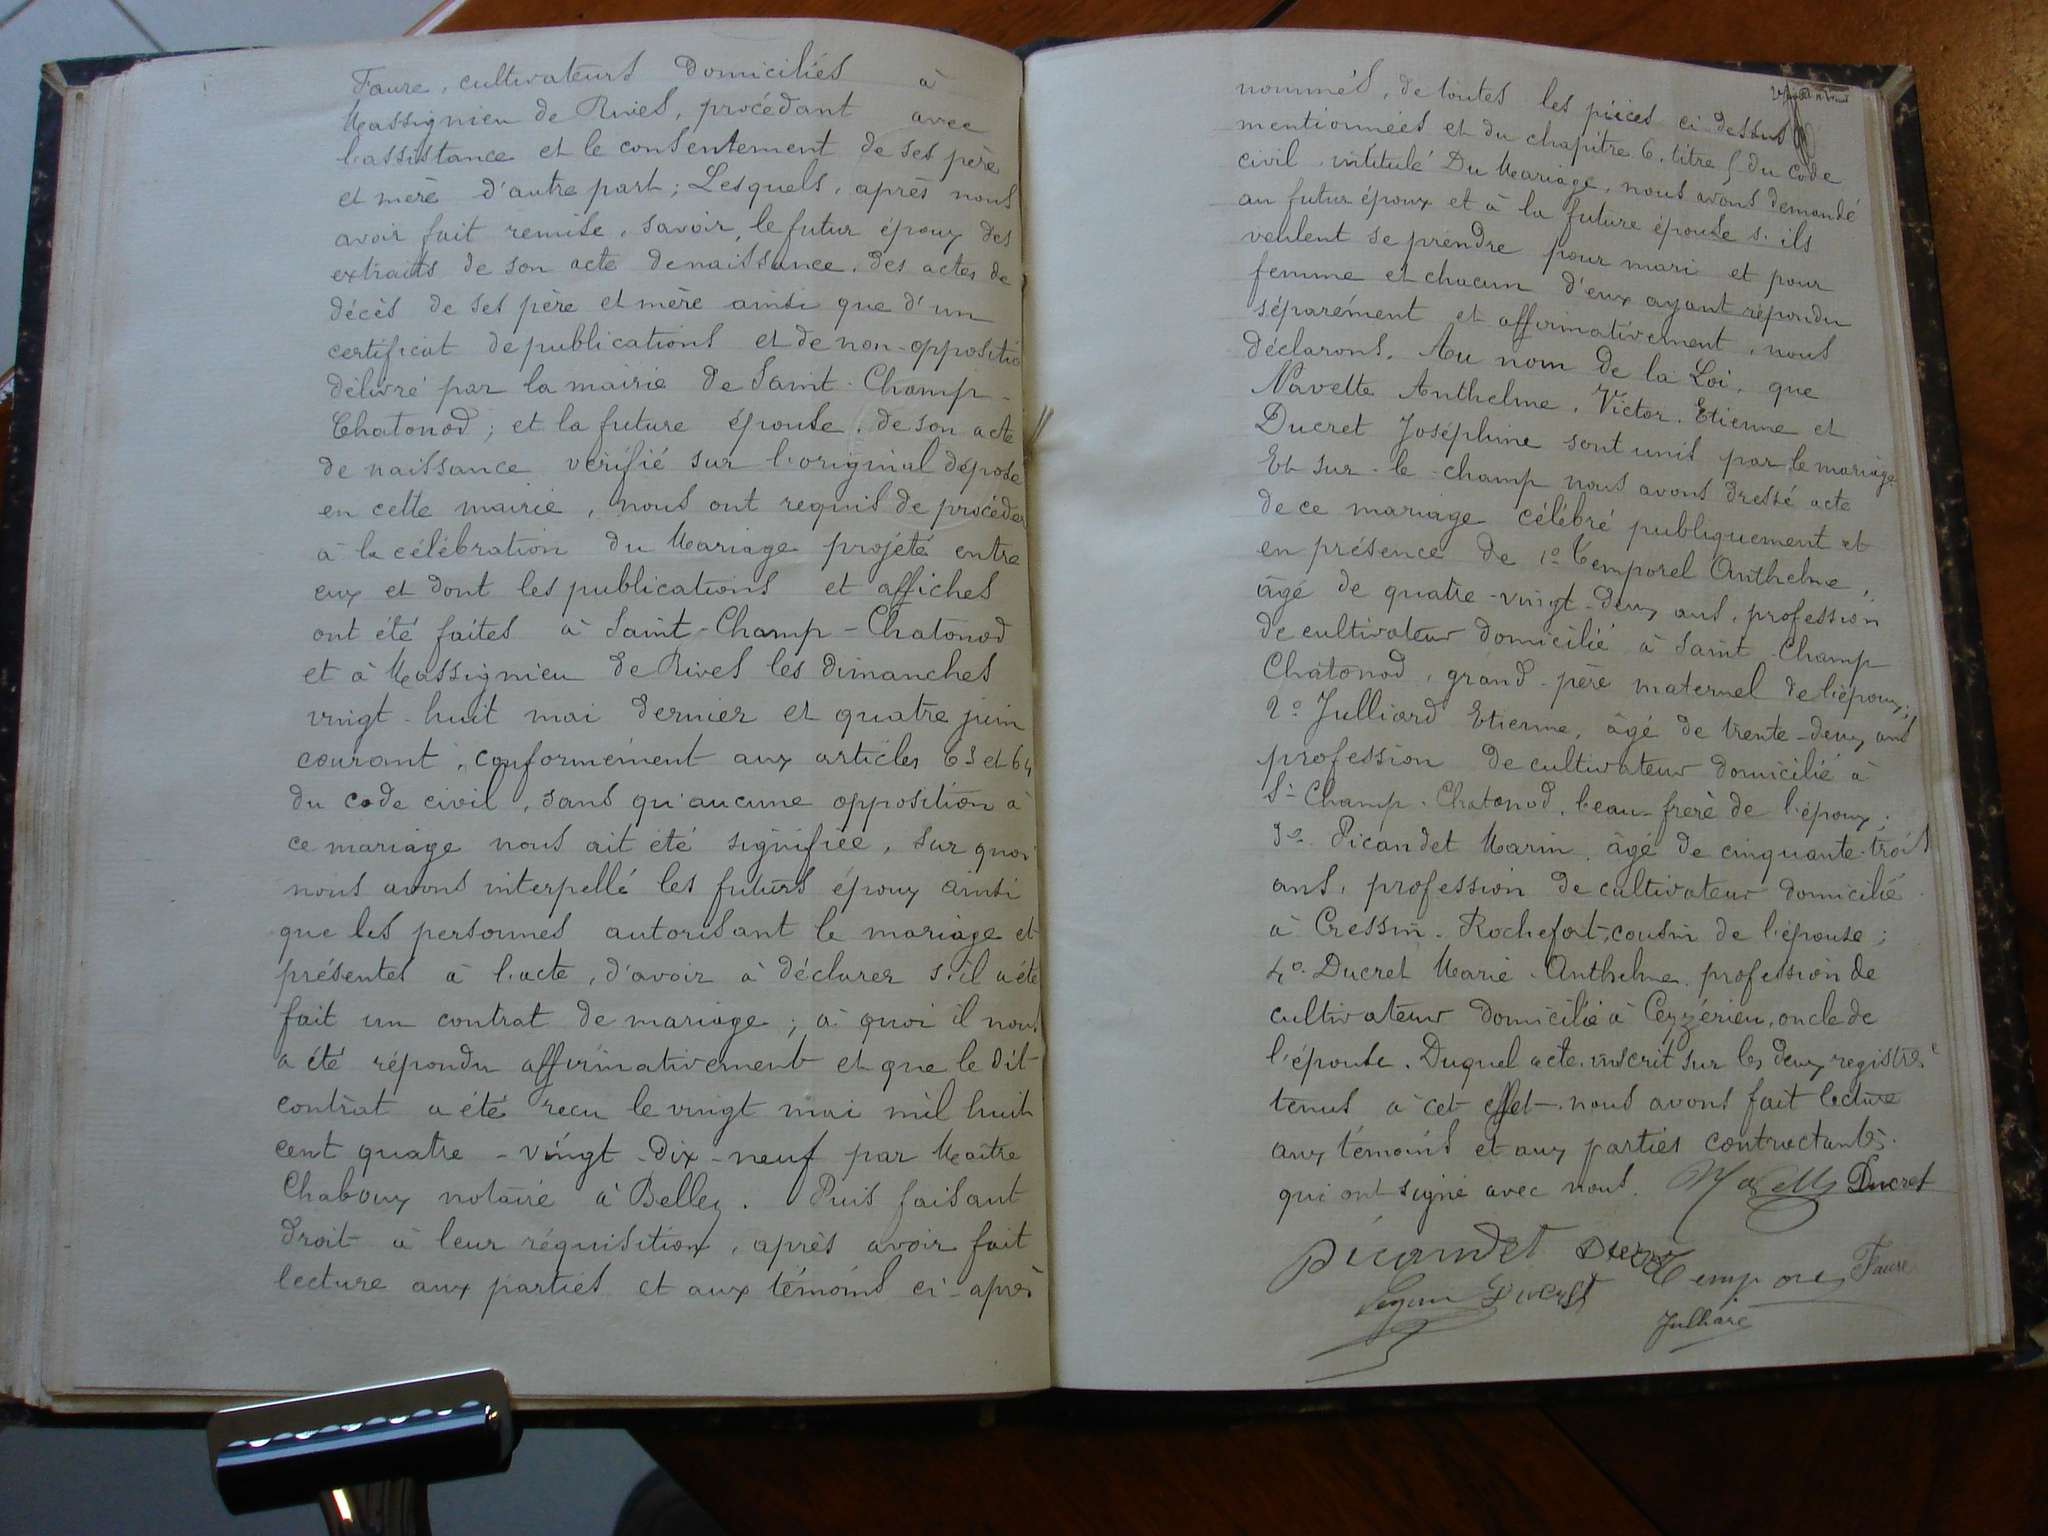 Faure, cultivateurs domiciliés à
Massignieu de Rives, procédant avec
l'assistance et le consentement de ses père
et mère d'autre part; Lesquels, après nous
avoir fait remise, savoir, le futur époux des
extraits de son acte de naissance, des actes de
décès de ses père et mère ainsi que d'un
certificat de publications et de non-oppositio
délivré par la mairie de Saint-Champ-
Chatonod; et la future épouse, de son acte
de naissance vérifié sur l'original déposé
en cette mairie, nous ont requis de procéder
à la célébration du Mariage projeté entre
eux et dont les publications et affiches
ont été faites à Saint-Champ-Chatonod
et à Massignieu de Rives les dimanches
vingt-huit mai dernier et quatre juin
courant, conformément aux articles 63 et 64
du code civil, sans qu'aucune opposition à
ce mariage nous ait été signifiée, sur quoi
nous avons interpellé les futurs époux ainsi
que les personnes autorisant le mariage et
présentes à l'acte, d'avoir à déclarer s'il a été
fait un contrat de mariage; à quoi il nous
a été répondu affirmativement et que le dit
contrat a été reçu le vingt mai mil huit
cent quatre-vingt-dix-neuf par Maître
Chaboux notaire à Belley. Puis faisant
droit à leur réquisition, après avoir fait
lecture aux parties et aux témoins ci-après
nommés, de toutes les pièces ci-dessus
mentionnées et du chapitre 6, titre 5 du Code
civil intitulé Du Mariage, nous avons demandé
au futur époux et à la future épouse s'ils
veulent se prendre pour mari et pour
femme et chacun d'eux ayant répondu
séparément et affirmativement, nous
déclarons, Au nom de la Loi, que
Navette Anthelme, Victor, Etienne et
Ducret Joséphine sont unis par le mariage
Et sur-le-champ nous avons dressé acte
de ce mariage célébré publiquement et
en présence de 1° Temporel Anthelme,
âgé de quatre-vingt-deux ans, profession
de cultivateur domicilié à Saint-Champ
Chatonod, grand-père maternel de l'époux;
2° Julliard Etienne, âgé de trente-deux ans
profession de cultivateur domicilié à
St-Champ-Chatonod, beau-frère de l'époux;
3° Picandet Marin, âgé de cinquante-trois
ans, profession de cultivateur domicilié
à Cressin-Rochefort, cousin de l'épouse;
4° Ducret Marie-Anthelme profession de
cultivateur domicilié à Ceyzérieu, oncle de
l'épouse. Duquel acte inscrit sur les deux registres
tenus à cet effet nous avons fait lecture
aux témoins et aux parties contractantes
qui ont signé avec nous. Ducret
Picandet Ducret Temporel Faure
Ducret
Julliard